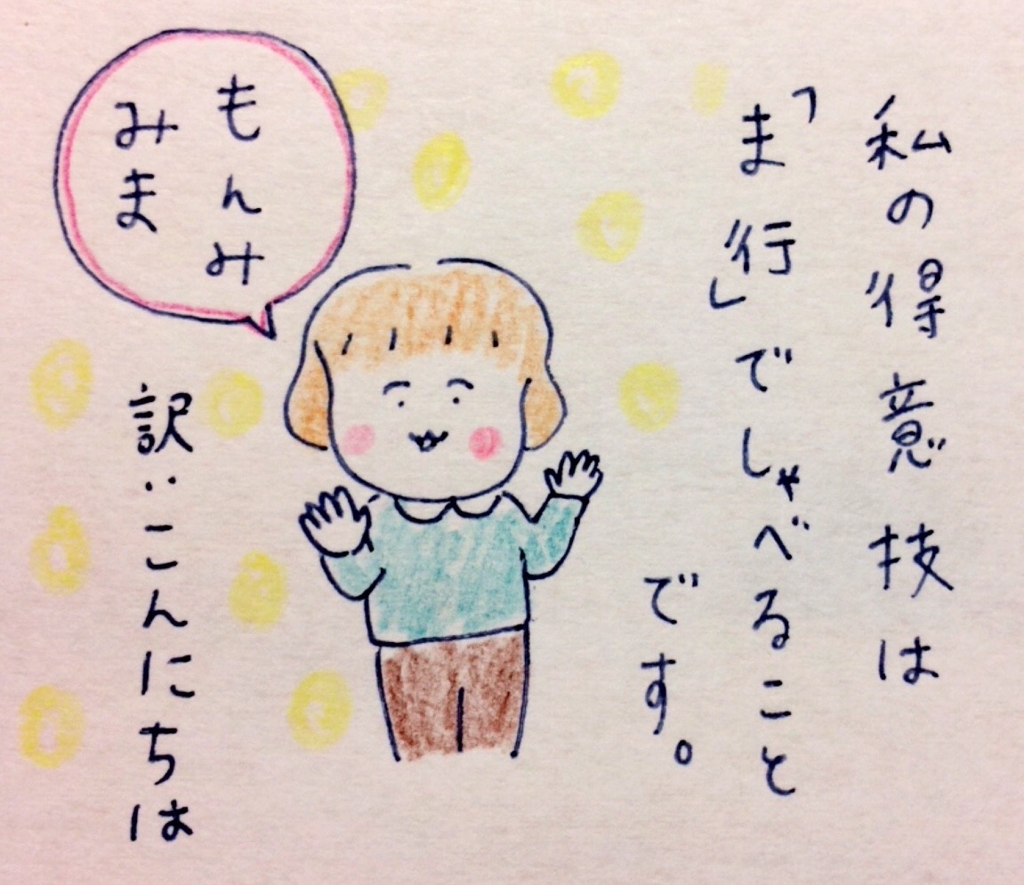 私の得意技は
「ま行」でしゃべること
です。
もんみ
みま
訳:こんにちは